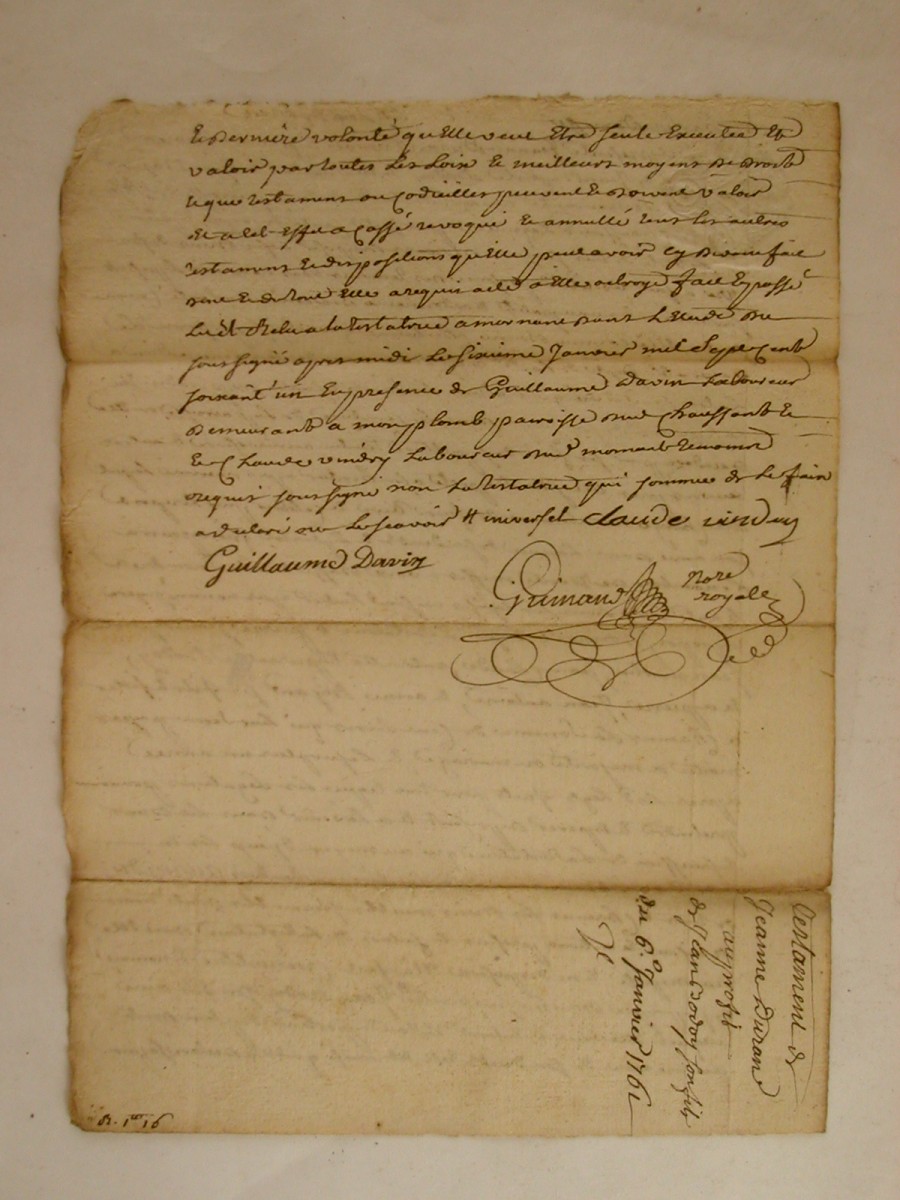 et derniere volonté qu'elle veut etre seule executée et
valoir par toutes les loix et meilleurs moyens de droit
et que testament ou codicilles peuvent et doivent valoir
et a cet effet a cassé revoqué et annullé tous les autres
testament et dispositions qu'elle peut avoir cy devant fait
dont et du tout elle a requis acte a elle octroyé fait et passé
Lu et Relu a la testatrice a mornant dans L'etude du
soussigné apres midi Le sixieme Janvier mil Sept Cent
soixant un En presence de Guillaume Davin Laboureur
demeurant a monplomb paroisse dud Chaussant et
et Claude vindry Laboureur dud mornant temoins
requis soussigné non La testatrice qui sommée de le faire
a declaré ne Le scavoir # universel Claude vindry
Guillaume Davin
Guinand Nore
royale
Testament de
Jeanne Duran
au profit
de Jean son fils
du 6e Janvier 1761
R. 1er 16